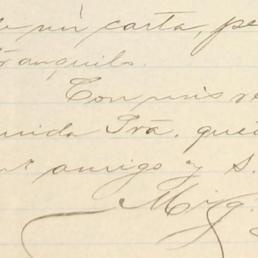 de mi carta, pe
tranquilo.
Con mis re
mida Sra. qued
amigo y S.
Mig.